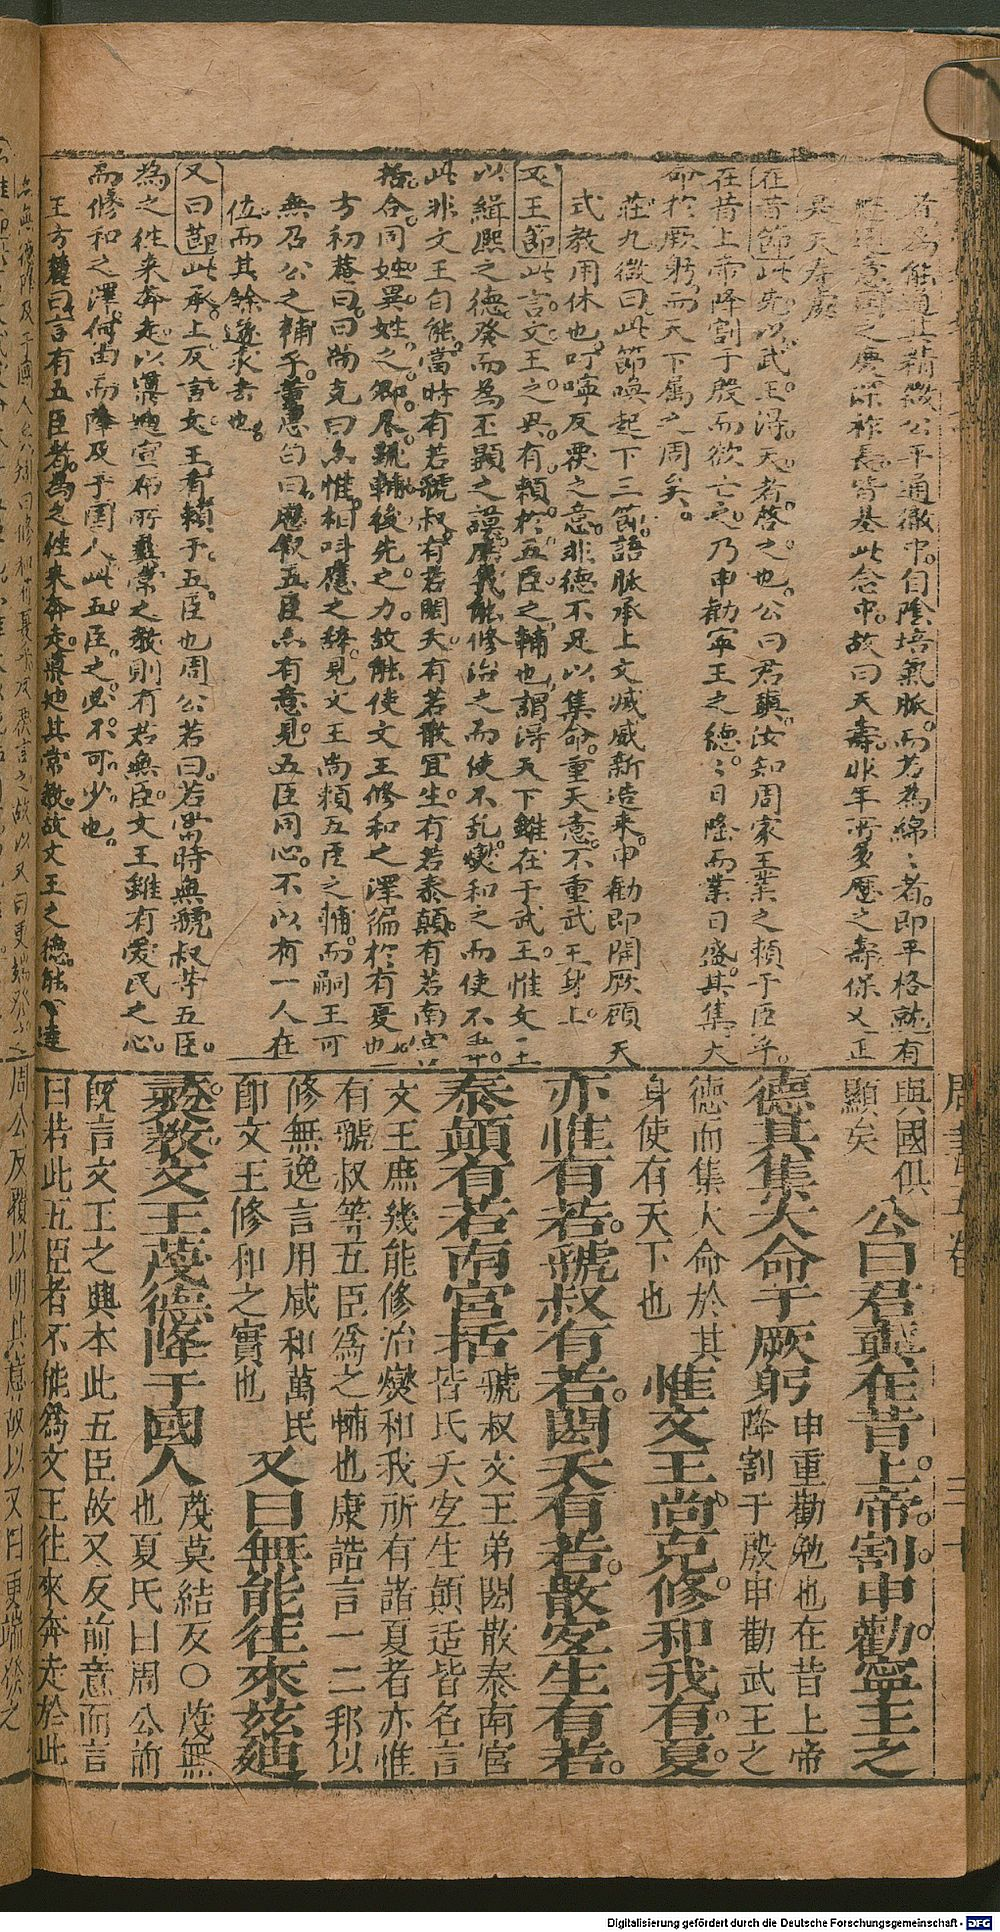 者為能通其精微公平通徹中自陰培氣脈而若為綿綿者即平格就有
天壽處
在昔節此先以武王得天者啓之也公曰君奭汝知周家王業之賴于臣乎
在昔上帝降割于殷而欲亡之乃申勸寧王之德德日隆而業日盛其集大
命於厥躬而天下屬之周矣
莊九微曰此節喚起下三節語脈承上文滅威新造來申勸即開厥顧天
式教用休也叮嚀反覆之意非德不足以集命重天意不重武王身上
又王節此言文王之興有賴於五臣之輔也謂得天下雖在于武王惟文王
以緝熙之德發而為丕顯之謨庶幾能修治之而使不亂燮和之而使不乖
此非文王自能當時有若虢叔有若閎夭有若散宜生有若泰顛有若南宮
括合同姓異姓之卿尽疏輔後先之力故能使文王修和之澤徧於有夏也
方初菴曰曰尚克曰亦惟相呼應之辭見文王尚賴五臣之輔而嗣王可
無召公之輔乎董思白曰應叙五臣亦有意見五臣同心不以有一人在
位而其餘遂求去也
又曰節此承上反言文王有賴于五臣也周公若曰若當時無虢叔等五臣
為之往來奔走以導迪宣布所彝常之教則有若無臣文王雖有愛民之心
而修和之澤何由而降及乎國人此五臣之必不可少也
王方麓曰言有五臣者為之往來奔走導迪其常教故文王之德能達
與國俱
顯矣
公曰君奭在昔上帝割申勸寧王之
申重勸勉也在昔上帝
降割于殷申勸武王之
德其集大命于厥躬
德而集大命於其
身使有天下也
惟文王尚克修和我有夏
亦惟有若虢叔有若閎夭有若散宜生有若
泰顛有若南宮括
虢叔文王弟閎散泰南宮
皆氏夭宜生顛适皆名言
文王庶幾能修治燮和我所有諸夏者亦惟
有虢叔等五臣為之輔也康誥言一二邦以
修無逸言用咸和萬民
即文王修和之實也
又曰無能往來茲迪
彝教文王蔑德降于國人
蔑莫結反○蔑無
也夏氏曰周公前
既言文王之興本此五臣故又反前意而言
曰若此五臣者不能為文王往來奔走於此
周書五卷
Digitalisierung gefördert durch die Deutsche Forschungsgemeinschaft - DFG